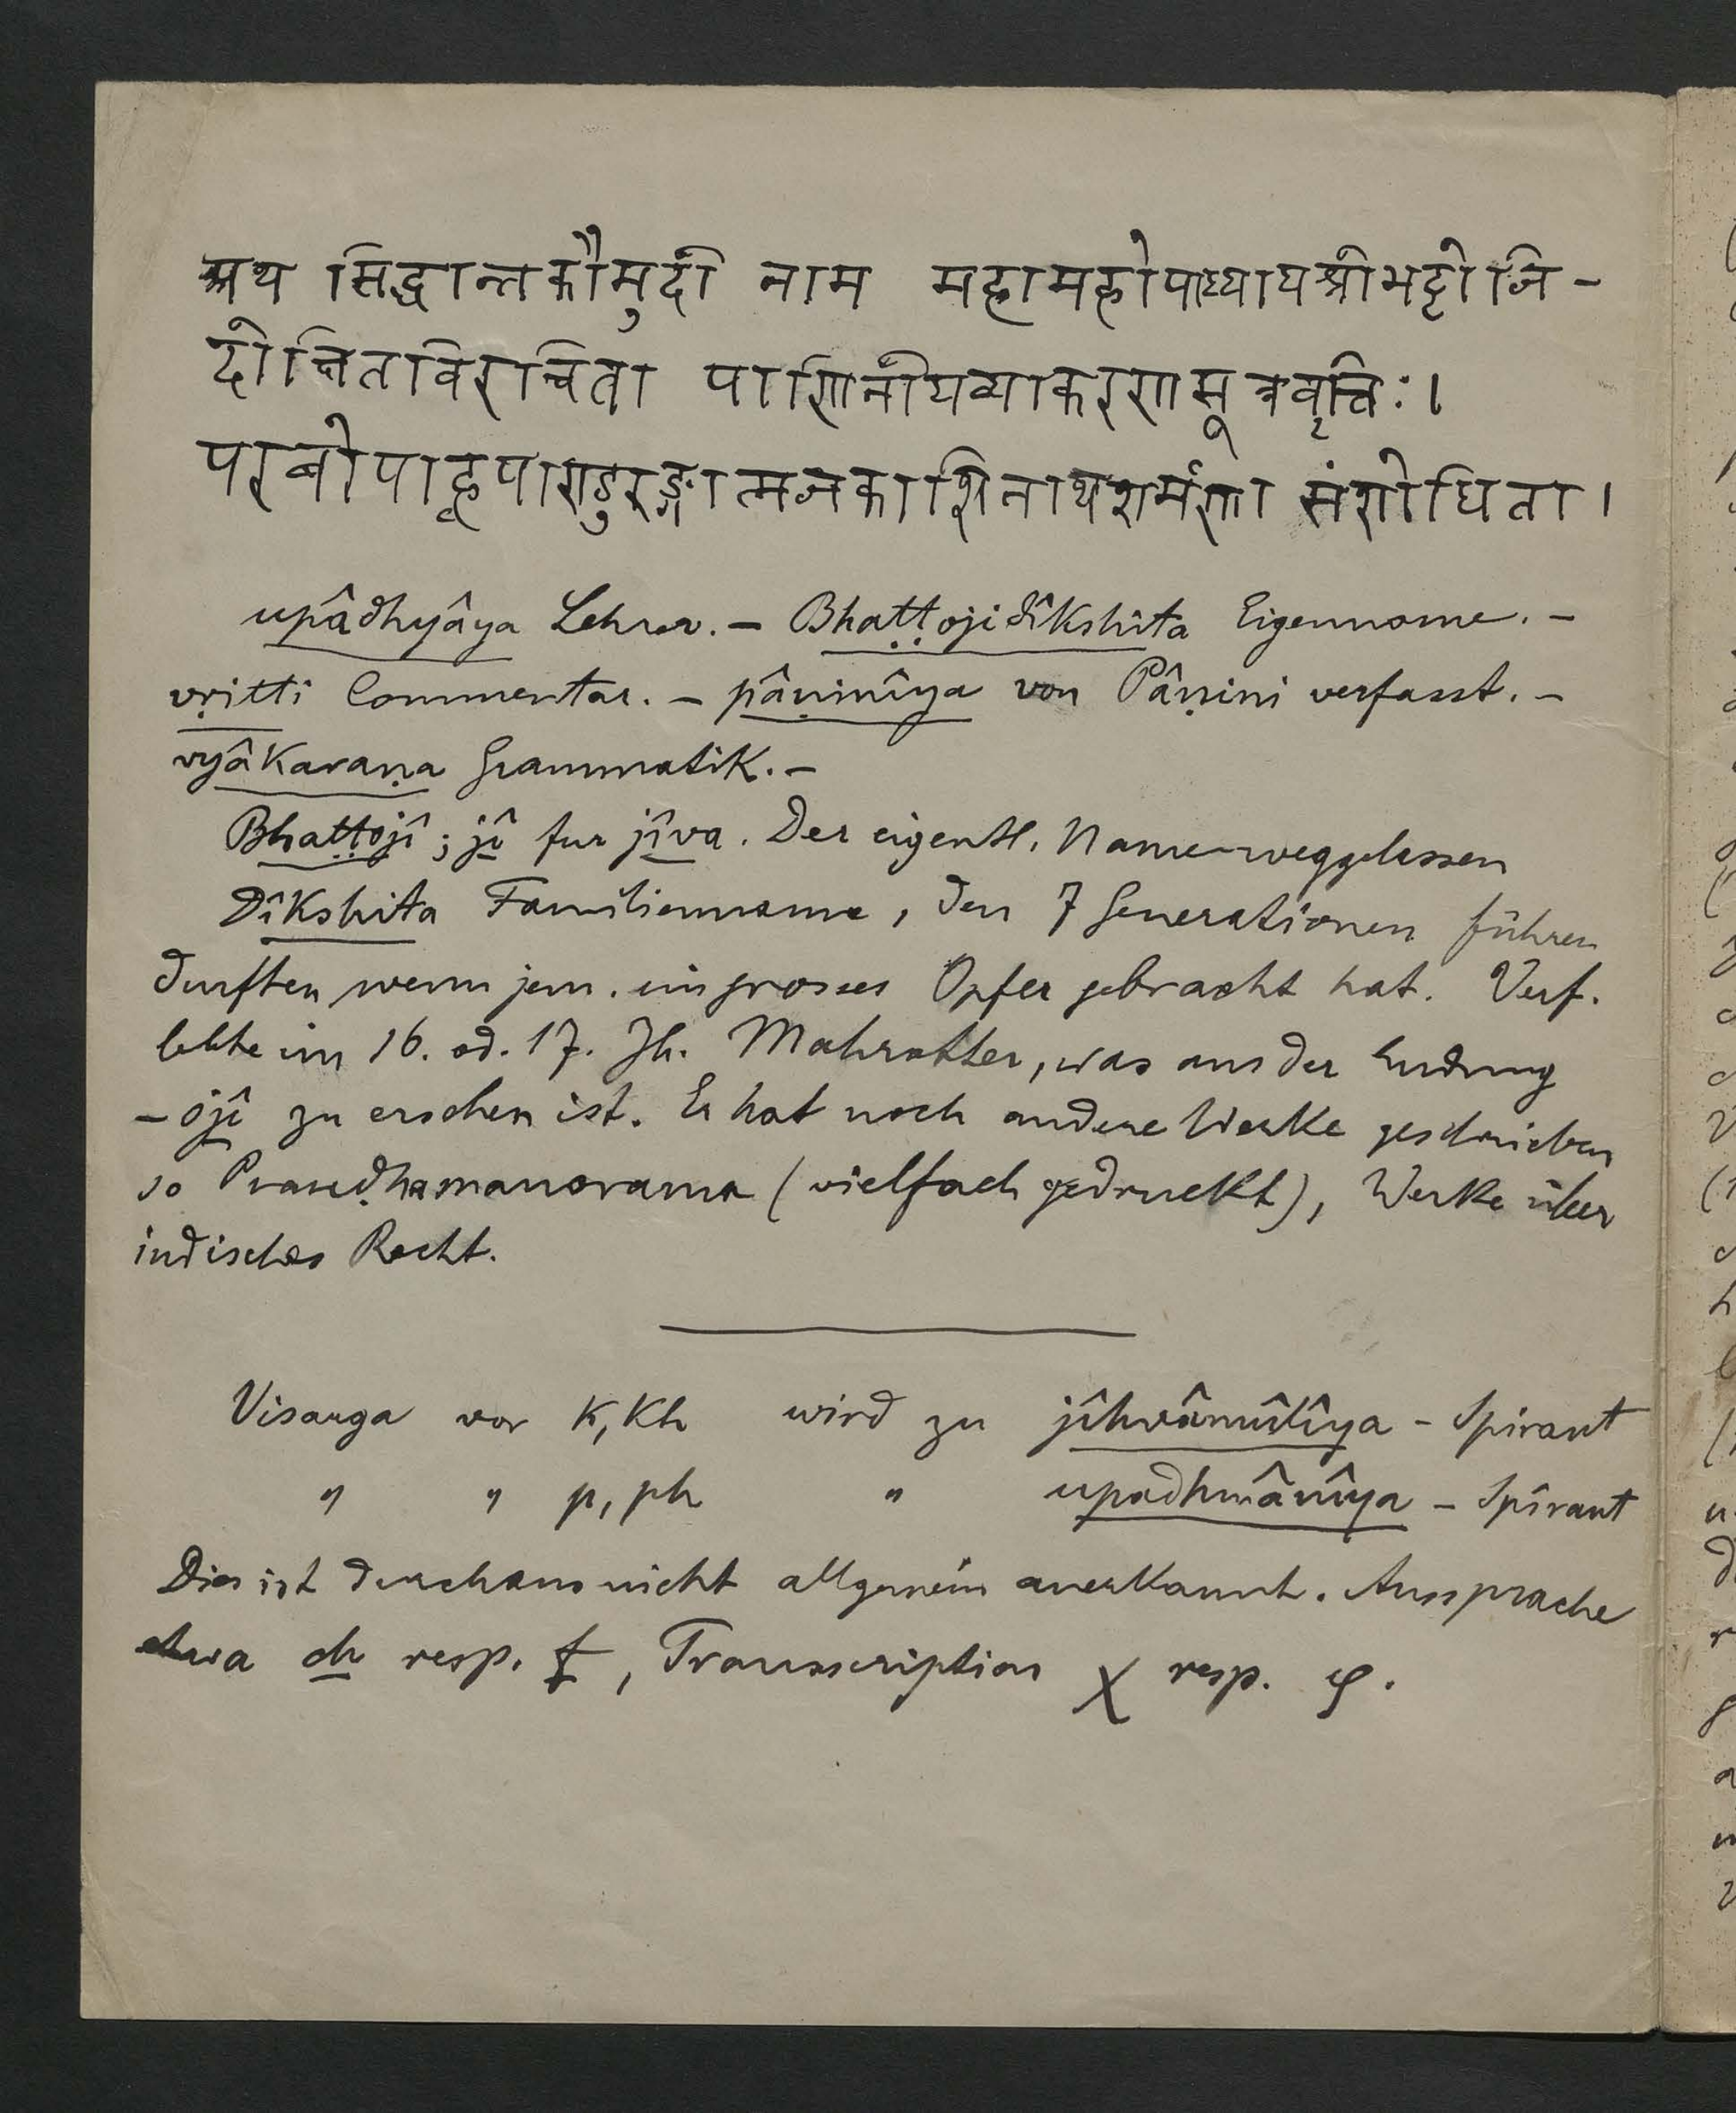 अथ सिद्धान्तकौमुदी नाम महामहोपाध्यायश्रीभट्टोजि-
दीक्षितविरचिता पाणिनीयव्याकरणसूत्रवृत्तिः।
परबोपाह्वपाण्डुरङ्गात्मजकाशिनाथशर्मणा संशोधिता।
upâdhyâya Lehrer. – Bhaṭṭojidîkshita Eigenname. –
vṛitti Commentar. – pâṇinîya von Pâṇini verfasst. –
vyâkaraṇa Grammatik. –
Bhaṭṭojî; jî fur jîva. Der eigentl. Name weggelassen
Dîkshita Familienname, den 7 Generationen führen
durften wenn jem. ein grosses Opfer gebracht hat. Verf.
lebte im 16. od. 17. Jh. Mahratter, was aus der Endung
– ojî zu ersehen ist. Er hat noch andere Werke geschrieben
so (vielfach gedruckt), Werke über
indisches Recht.
Visarga vor k, kh wird zu jîhvâmûlîya – Spirant
" " p, ph " upadhmânîya – Spirant
Dies ist durchaus nicht allgemein anerkannt. Aussprache
etwa ch resp. f, Transscription χ resp. φ.